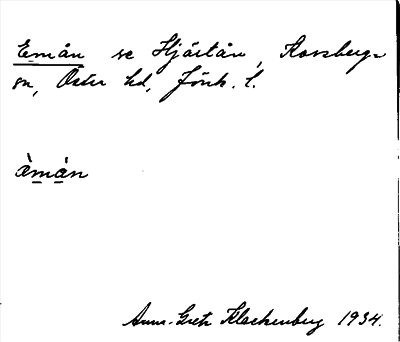 Emån se Hjärtån, Korsberga
sn, Öster hd, Jönk. l.
àmán
Anna-Greta Klackenberg 1934.